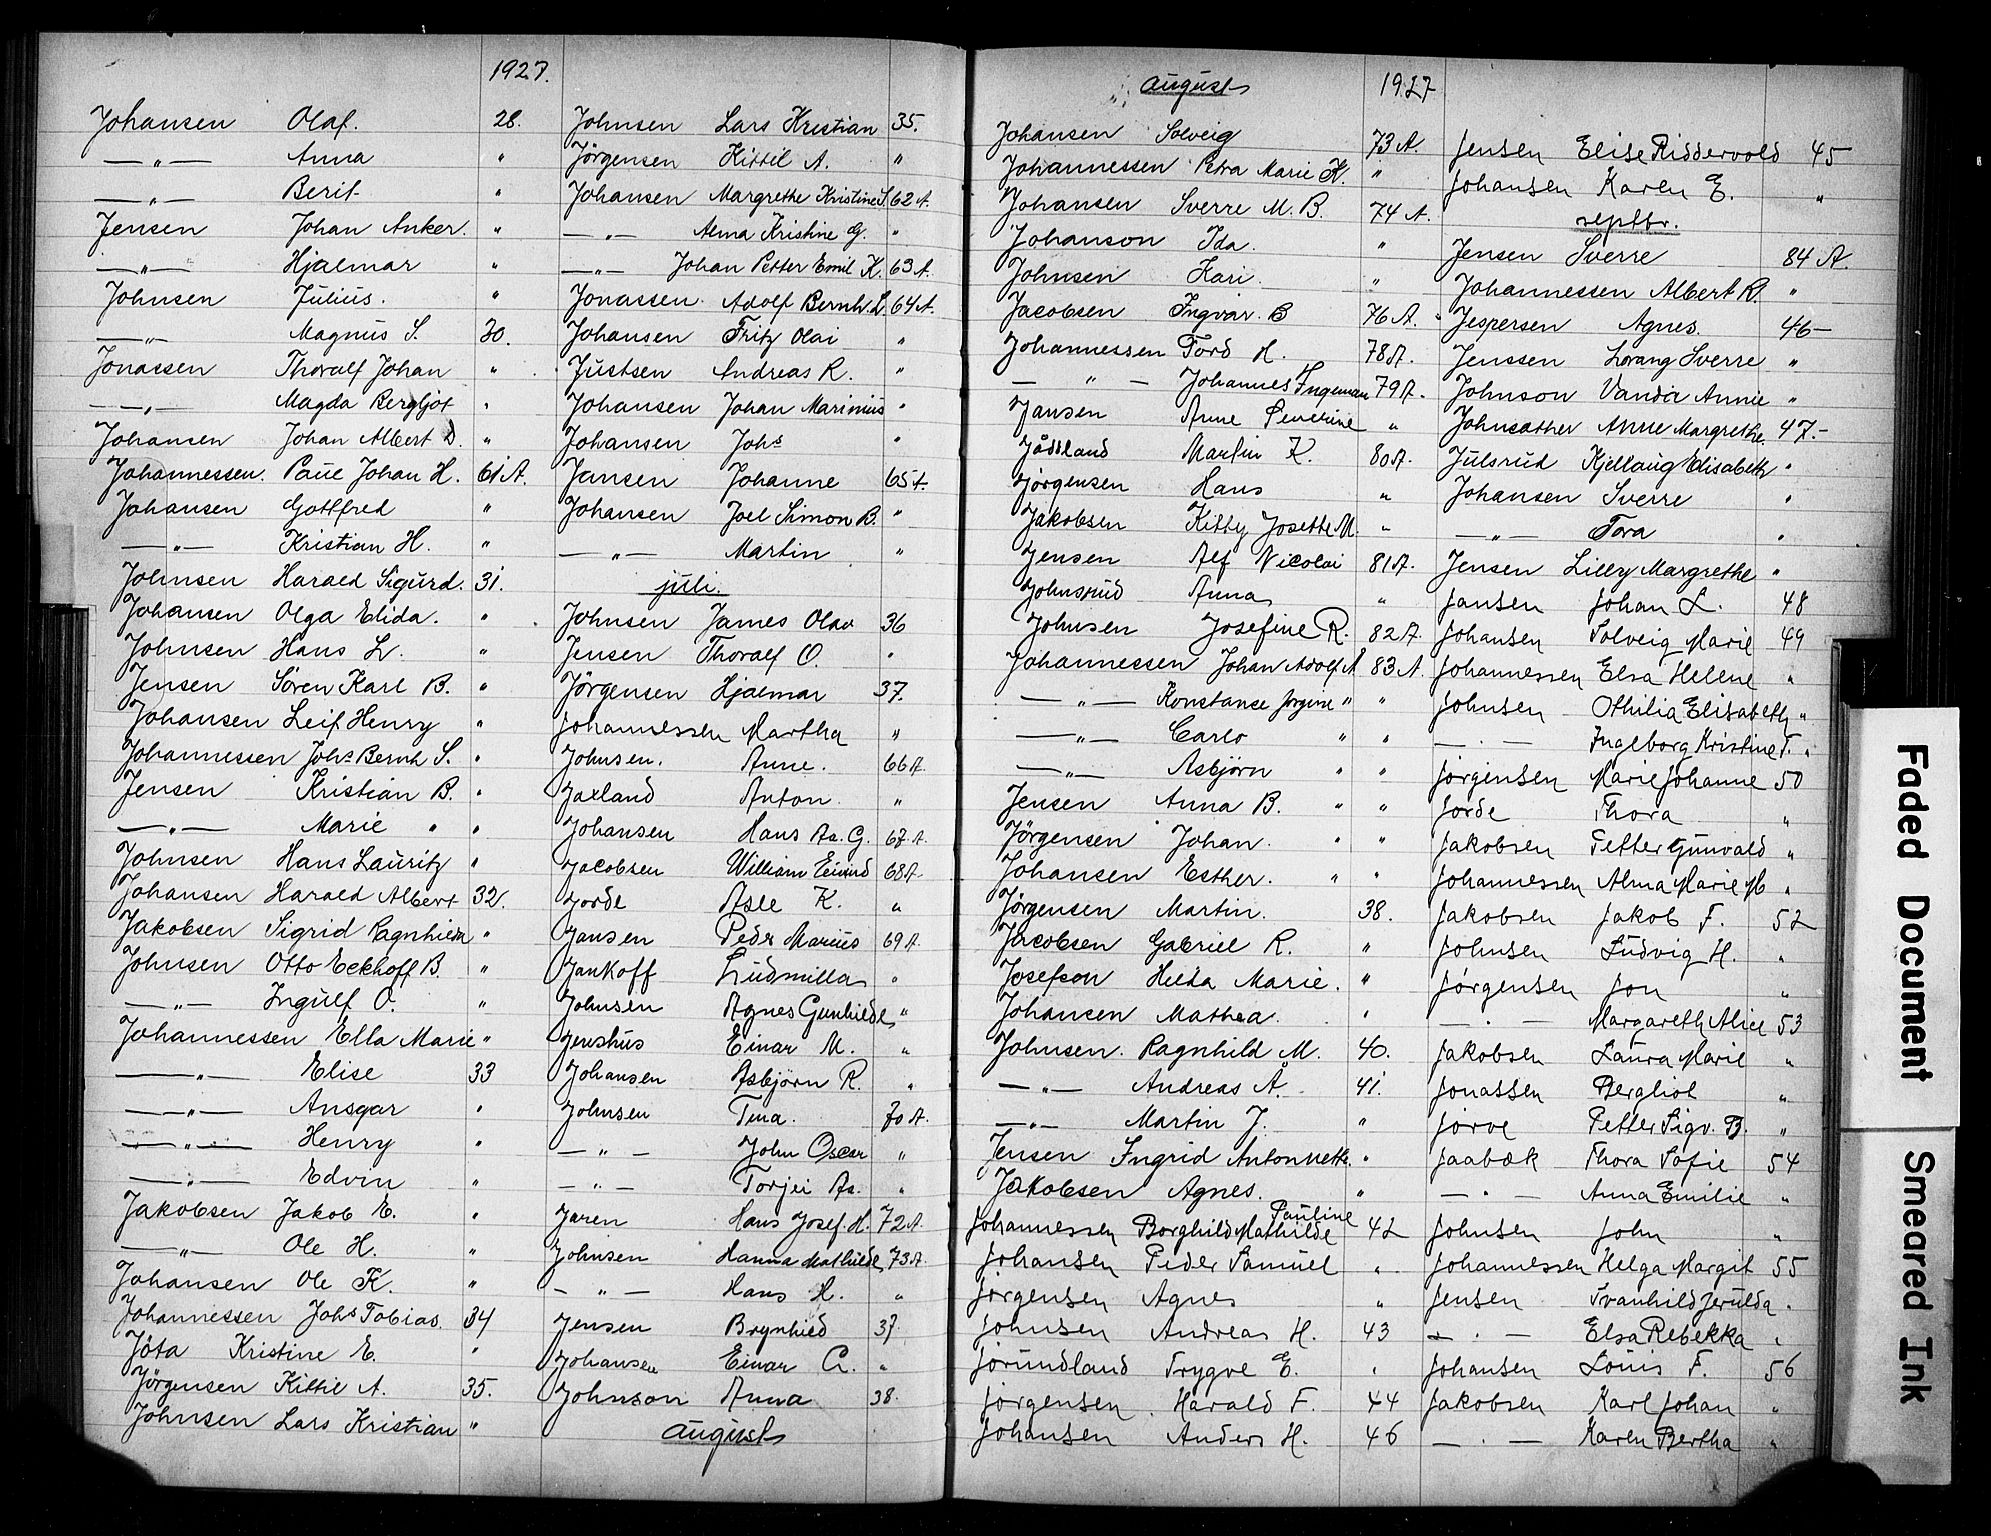 1927.
Johansen Olaf. 28.
—„— Anna „
—„— Berit „
Jensen Johan Anker. „
—„— Hjalmar „
Johnsen Julius. „
—„— Magnus S. 30.
Jonassen Thoralf Johan „
—„— Magda Bergljot „
Johansen Johan Albert D. „
Johannessen. Paul Johan H. 61 A.
Johansen Gottfred „
—„— Kristian H. „
Johnsen Harald Sigurd. 31.
Johansen Olga Elida. „
Johnsen Hans L. „
Jensen Sören Karl B. „
Johansen Leif Henry „
Johannessen Johs Bernh S. „
Jensen Kristian B. „
—„— Marie „ „
Johnsen Hans Lauritz „
Johansen Harald Albert 32.
Jakobsen Sigrid Ragnhild „
Johnsen Otto Eckhoff B. „
—„— Ingulf O. „
Johannessen Ella Marie „
—„— Elise 33
—„— Ansgar „
—„— Henry „
—„— Edvin „
Jakobsen Jakob E. „
—„— Ole H. „
Johansen Ole K. „
Johannessen Johs Tobias. 34
Jöta Kristine E. „
Jörgensen Kittil A. 35.
Johnsen Lars Kristian „
Johnsen Lars Kristian 35.
Jörgensen Kittil A. „
Johansen Margrethe Kristine S. 62 A.
—„— Alma Kristine G. „
—„— Johan Petter Emil K. 63 A.
Jonassen Adolf Bernh. L. 64 A.
Johansen Fritz Olai „
Justsen Andreas R. „
Johansen Johan Marinius „
Johansen Johs „
Jansen Johanne 65 A.
Johansen Joel Simon B. „
—„— Martin „
juli.
Johnsen James Olav 36
Jensen Thoralf O. „
Jörgensen Hjalmar 37.
Johannessen Martha „
Johnsen. Anne. 66 A.
Jaxland Anton „
Johansen Hans As. G. 67 A.
Jacobsen William Eivind 68 A.
Jorde Asle K. „
Jansen Peder Marius 69 A.
Jankoff Ludmilla „
Johnsen Agnes Gunhilde „
Jenshus Einar M. „
Johansen Asbjörn R. „
Johnsen Tina. 70 A.
— „ — John Oscar „
— „ — Torjei As. „
Jaren Hans Josef. H. 72 A.
Johnsen Hanna Mathilde 73 A.
— „ — Hans H. „
Jensen Brynhild 37.
Johansen Einar G. „
Johnson Anna 38.
august
august 1927
Johansen Solveig 73 A.
Johannessen Petra Marie K. „
Johansen Sverre M. B. 74 A.
Johanson Ida. „
Johnsen Kari. „
Jacobsen Ingvar. B 76 A.
Johannessen Tord H. 78 A.
— „ — Johannes Ingeman 79 A.
Jansen Anne Severine „
Jådland Martin K. 80 A.
Jörgensen Hans „
Jakobsen Kitty Josette M. „
Jensen Alf Nicolai 81 A.
Johnsrud Anna „
Johnsen Josefine R. 82 A.
Johannessen Johan Adolf A 83 A.
—„— Konstanse Jörgine „ „
—„— Carlo „ „
—„— Asbjörn „ „
Jensen Anna B. „ „
Jörgensen Johan. „ „
Johansen Esther. „ „
Jörgensen Martin. 38.
Jacobsen Gabriel R. „
Josefson Hilda Marie. „
Johansen Mathea. „
Johnsen. Ragnhild M. 40.
—„— Andreas A. 41.
—„— Martin J. „
Jensen Ingrid Antonnette. „
Jakobsen Agnes. „
Johannessen Borghild Mathilde Pauline 42
Johansen Peder Samuel „
Jörgensen Agnes „
Johnsen Andreas H. 43
Jörundland Trygve E. „
Jörgensen Harald F. 44
Johansen Anders H. 46
Jensen Elise Riddervold 45
Johansen Karen E. „
septbr.
Jensen Sverre 84 A.
Johannessen Albert R. „
Jespersen Agnes. 46–
Jenssen Lorang Sverre „
Johnson Vanda Annie „
Johnsather Anne Margrethe 47.–
Julsrud Kjellaug Elisabeth „
Johansen Sverre „
—„— Tora „
Jensen Lilly Margrethe „
Jansen Johan L. 48
Johansen Solveig Marie 49
Johannessen Elsa Helene „
Johnsen Othilia Elisabeth „
— . — Ingeborg Kristine T. „
Jörgensen Marie Johanne 50
Jorde Thora „
Jakobsen Petter Gunvald „
Johannessen Alma Marie M „
Jakobsen Jakob F. 52
Johnsen Ludvig H. „
Jörgensen Jon „
— . — Margareth Alice 53
Jakobsen Laura Marie „
Jonassen Bergliot „
Jorve Petter Sigv. B. „
Jaabæk Thora Sofie 54
— . — Anna Emilie „
Johnsen John „
Johannessen Helga Margit 55
Jensen Svanhild Jerulda „
— . — Elsa Rebekka „
Johansen Louis F. 56
Jakobsen Karl Johan „
— . — Karen Bertha „
Faded Document
Smeared Ink